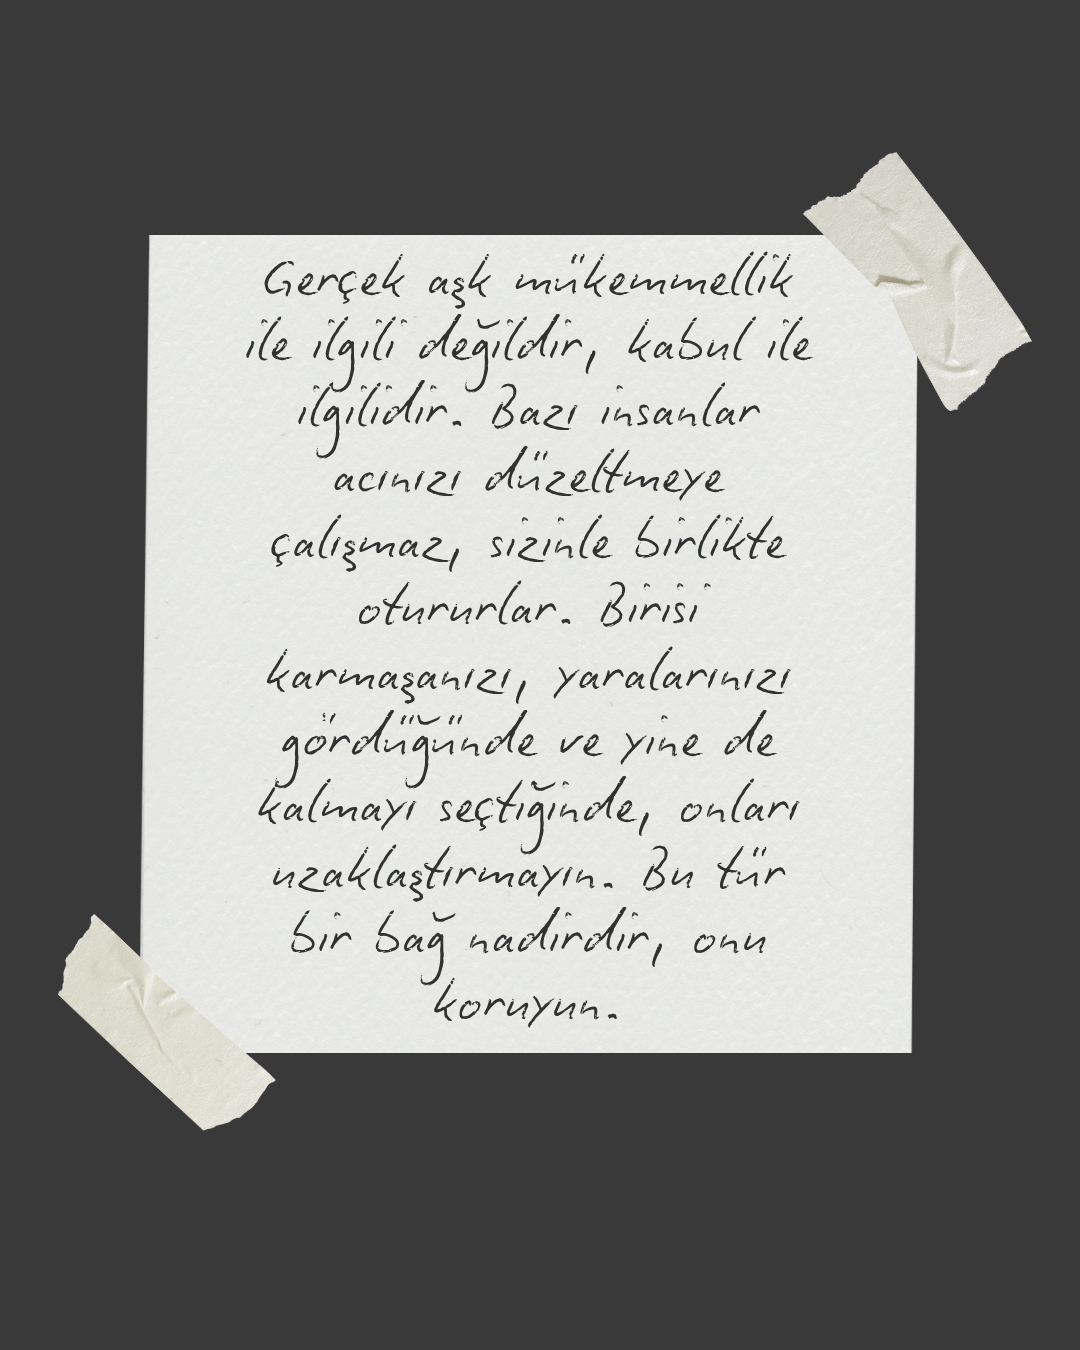 Gerçek aşk mükemmellik
ile ilgili değildir, kabul ile
ilgilidir. Bazı insanlar
acınızı düzeltmeye
çalışmaz, sizinle birlikte
otururlar. Birisi
karmaşanızı, yaralarınızı
gördüğünde ve yine de
kalmayı seçtiğinde, onları
uzaklaştırmayın. Bu tür
bir bağ nadirdir, onu
koruyun.